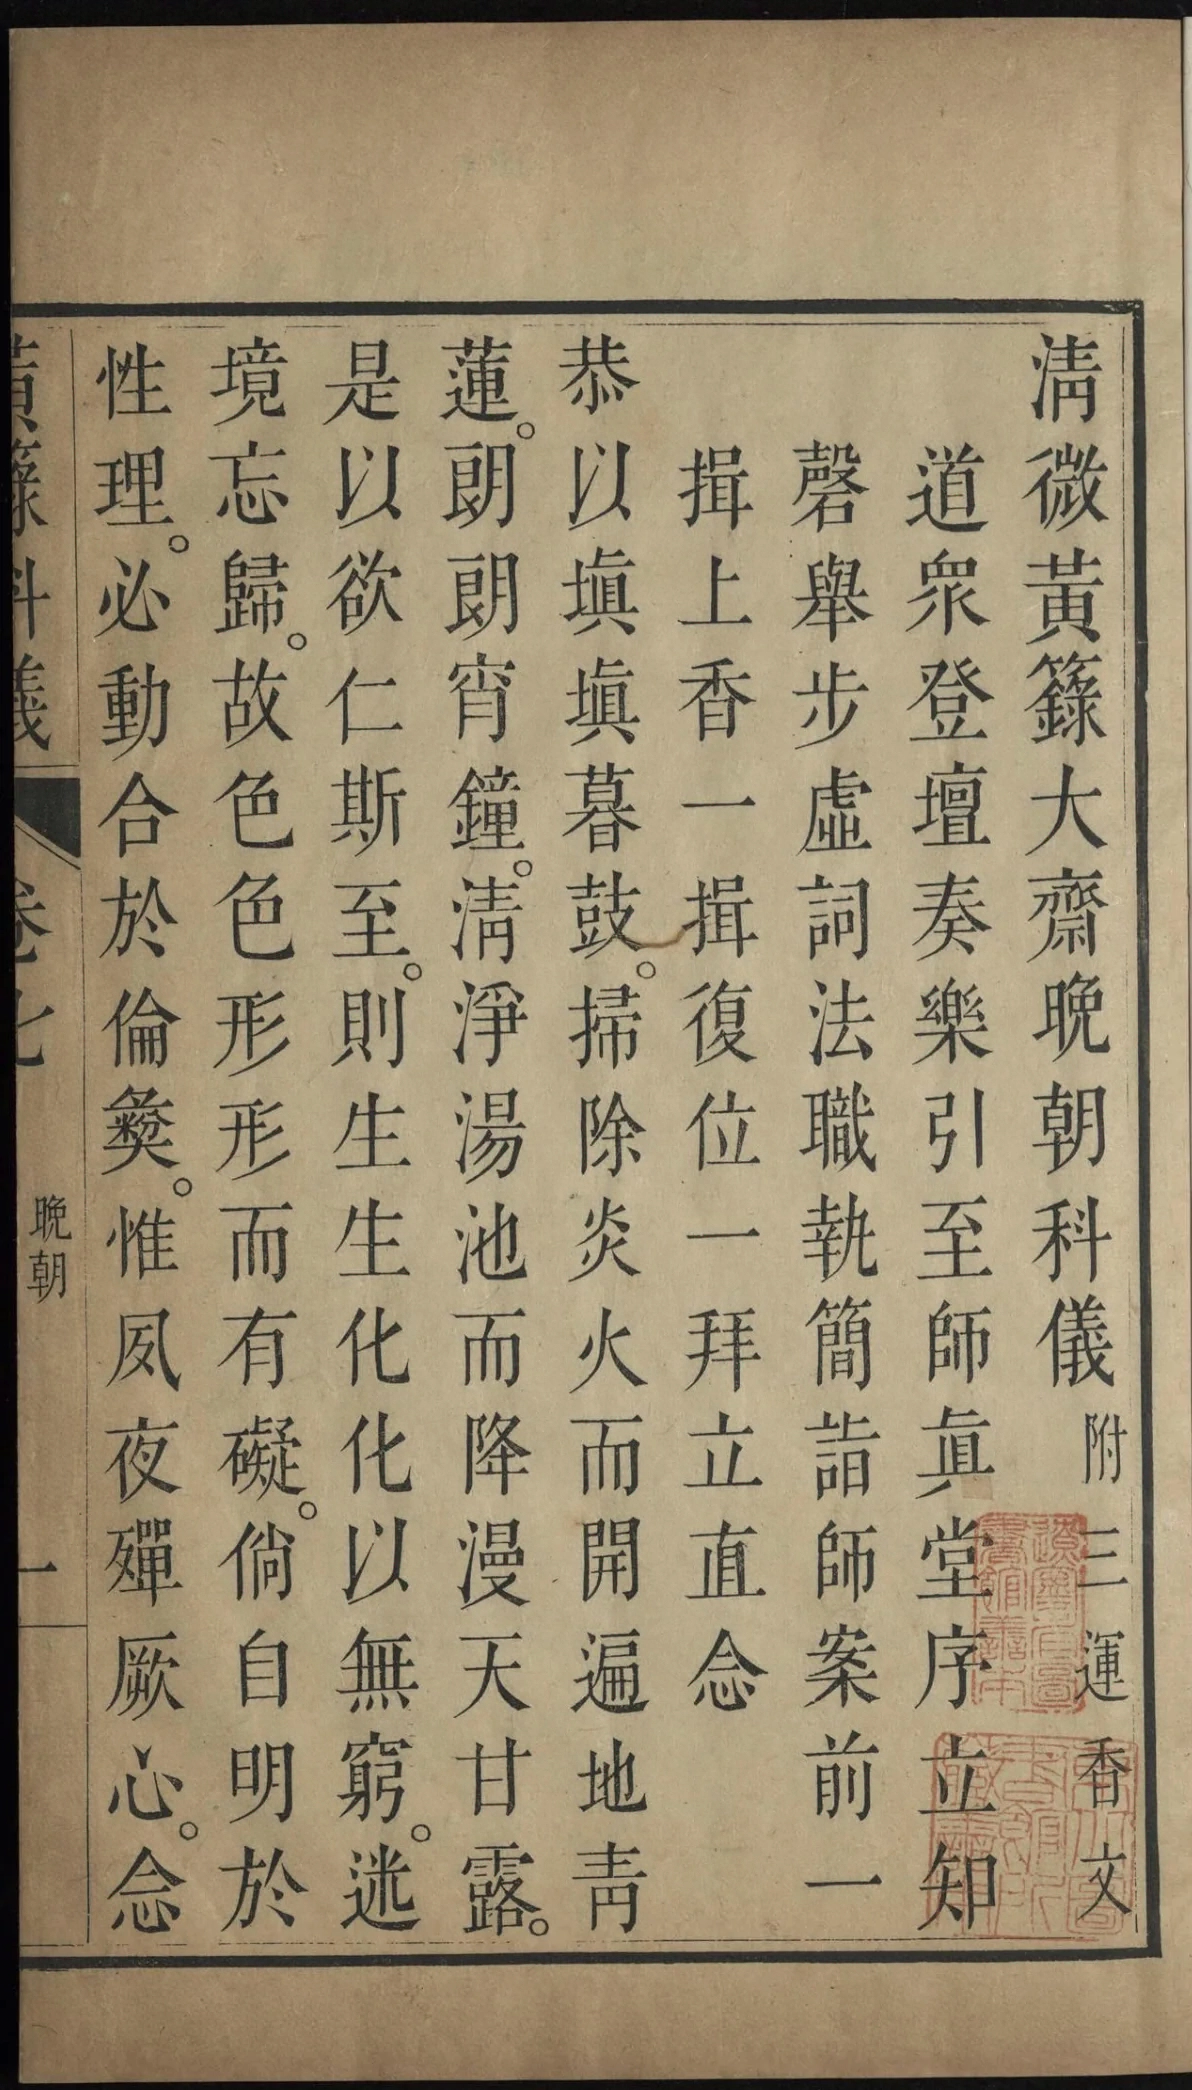 淸微黃籙大齋晚朝科儀 附三運香文
道衆登壇奏樂引至師眞堂序立知
磬舉步虛詞法職執簡詣師案前一
揖上香一揖復位一拜立直念
恭以塡塡暮鼓。掃除炎火而開遍地靑
蓮。朗朗宵鐘。淸淨湯池而降漫天甘露。
是以欲仁斯至。則生生化化以無窮。迷
境忘歸。故色色形形而有礙。倘自明於
性理。必動合於倫彝。惟夙夜殫厥心。念
黃籙科儀 卷七 晚朝 一